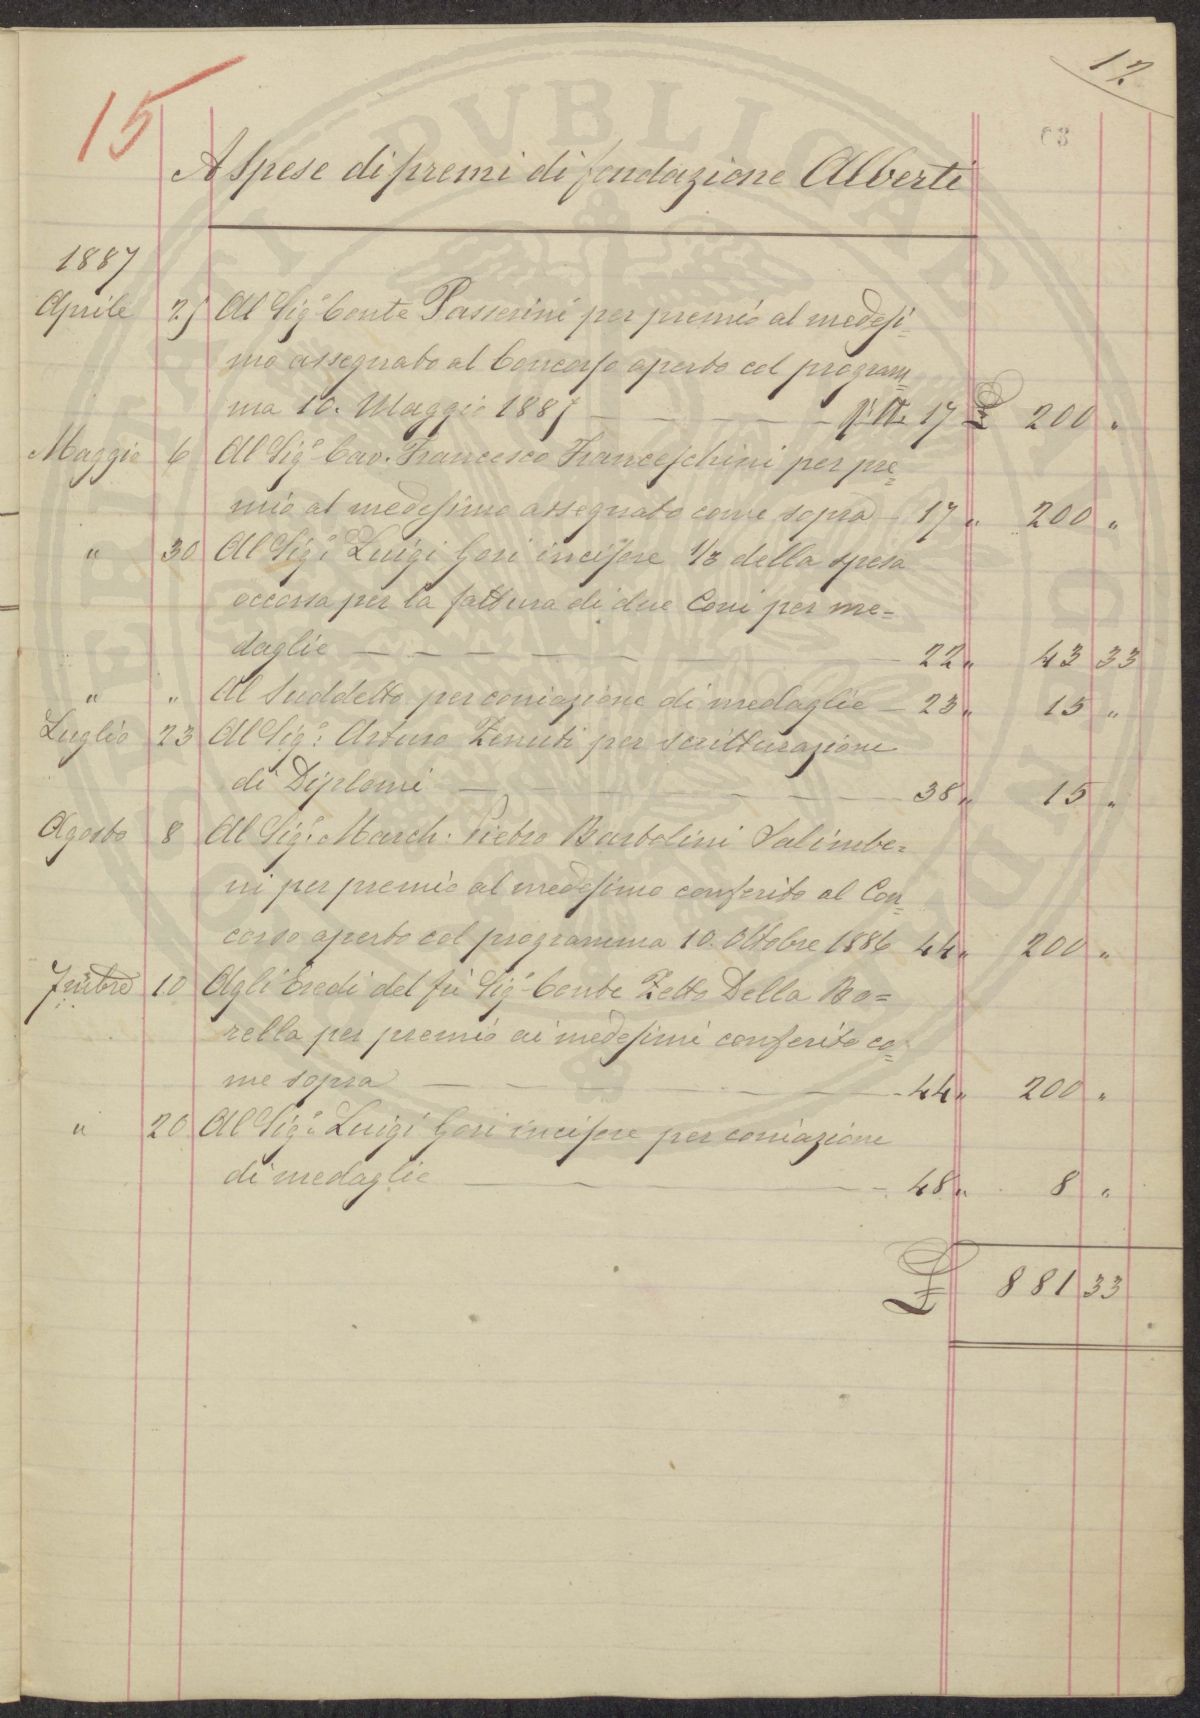 15
12
63
A spese di premi di fondazione Alberti
1887
Aprile 25 Al Sig.r Conte Passerini per premio al medesi-
mo assegnato al Concorso aperto col program-
ma 10. Maggio 1885 — — — — 17 £ 200 "
Maggio 6 Al Sig.r Cav. Franceso Franceschini per pre=
mio al medesimo assegnato come sopra — 17 " 200 "
" 30 Al Sig.r Luigi Gori incisore 1/3 della spesa
occorsa per la fattura di due Coni per me=
daglie — — — — — — — 22 " 43 33
" " Al Suddetto per coniazione di medaglie — 23 " 15 "
Luglio 23 Al Sig.r Arturo per scritturazione
di Diplomi — — — — — — — 38 " 15 "
Agosto 8 Al Sig.r March: Pietro Bartolini Salimbe=
ni per premio al medesimo conferito al Con=
corso aperto col programma 10. Ottobre 1886 44 " 200 "
7mbre 10 Agli Eredi del fù Sig.r Conte Della Bo=
rella per premio ai medesimi conferito co=
me sopra — — — — — — — 44 " 200 "
" 20 Al Sig.r Luigi Gori incisore per coniazione
di medaglie — — — — — 48 " 8 "
£ 881 33